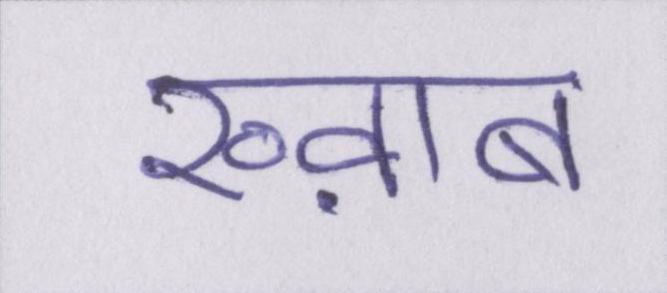 ख्व़ाब